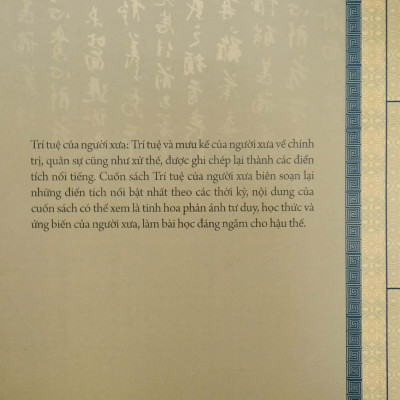 Trí tuệ của người xưa: Trí tuệ và mưu kế của người xưa về chính
trị, quân sự cũng như xử thế, được ghi chép lại thành các điển
tích nổi tiếng. Cuốn sách Trí tuệ của người xưa biên soạn lại
những điển tích nổi bật nhất theo các thời kỳ, nội dung của
cuốn sách có thể xem là tinh hoa phản ánh tư duy, học thức và
ứng biến của người xưa, làm bài học đáng ngẫm cho hậu thế.